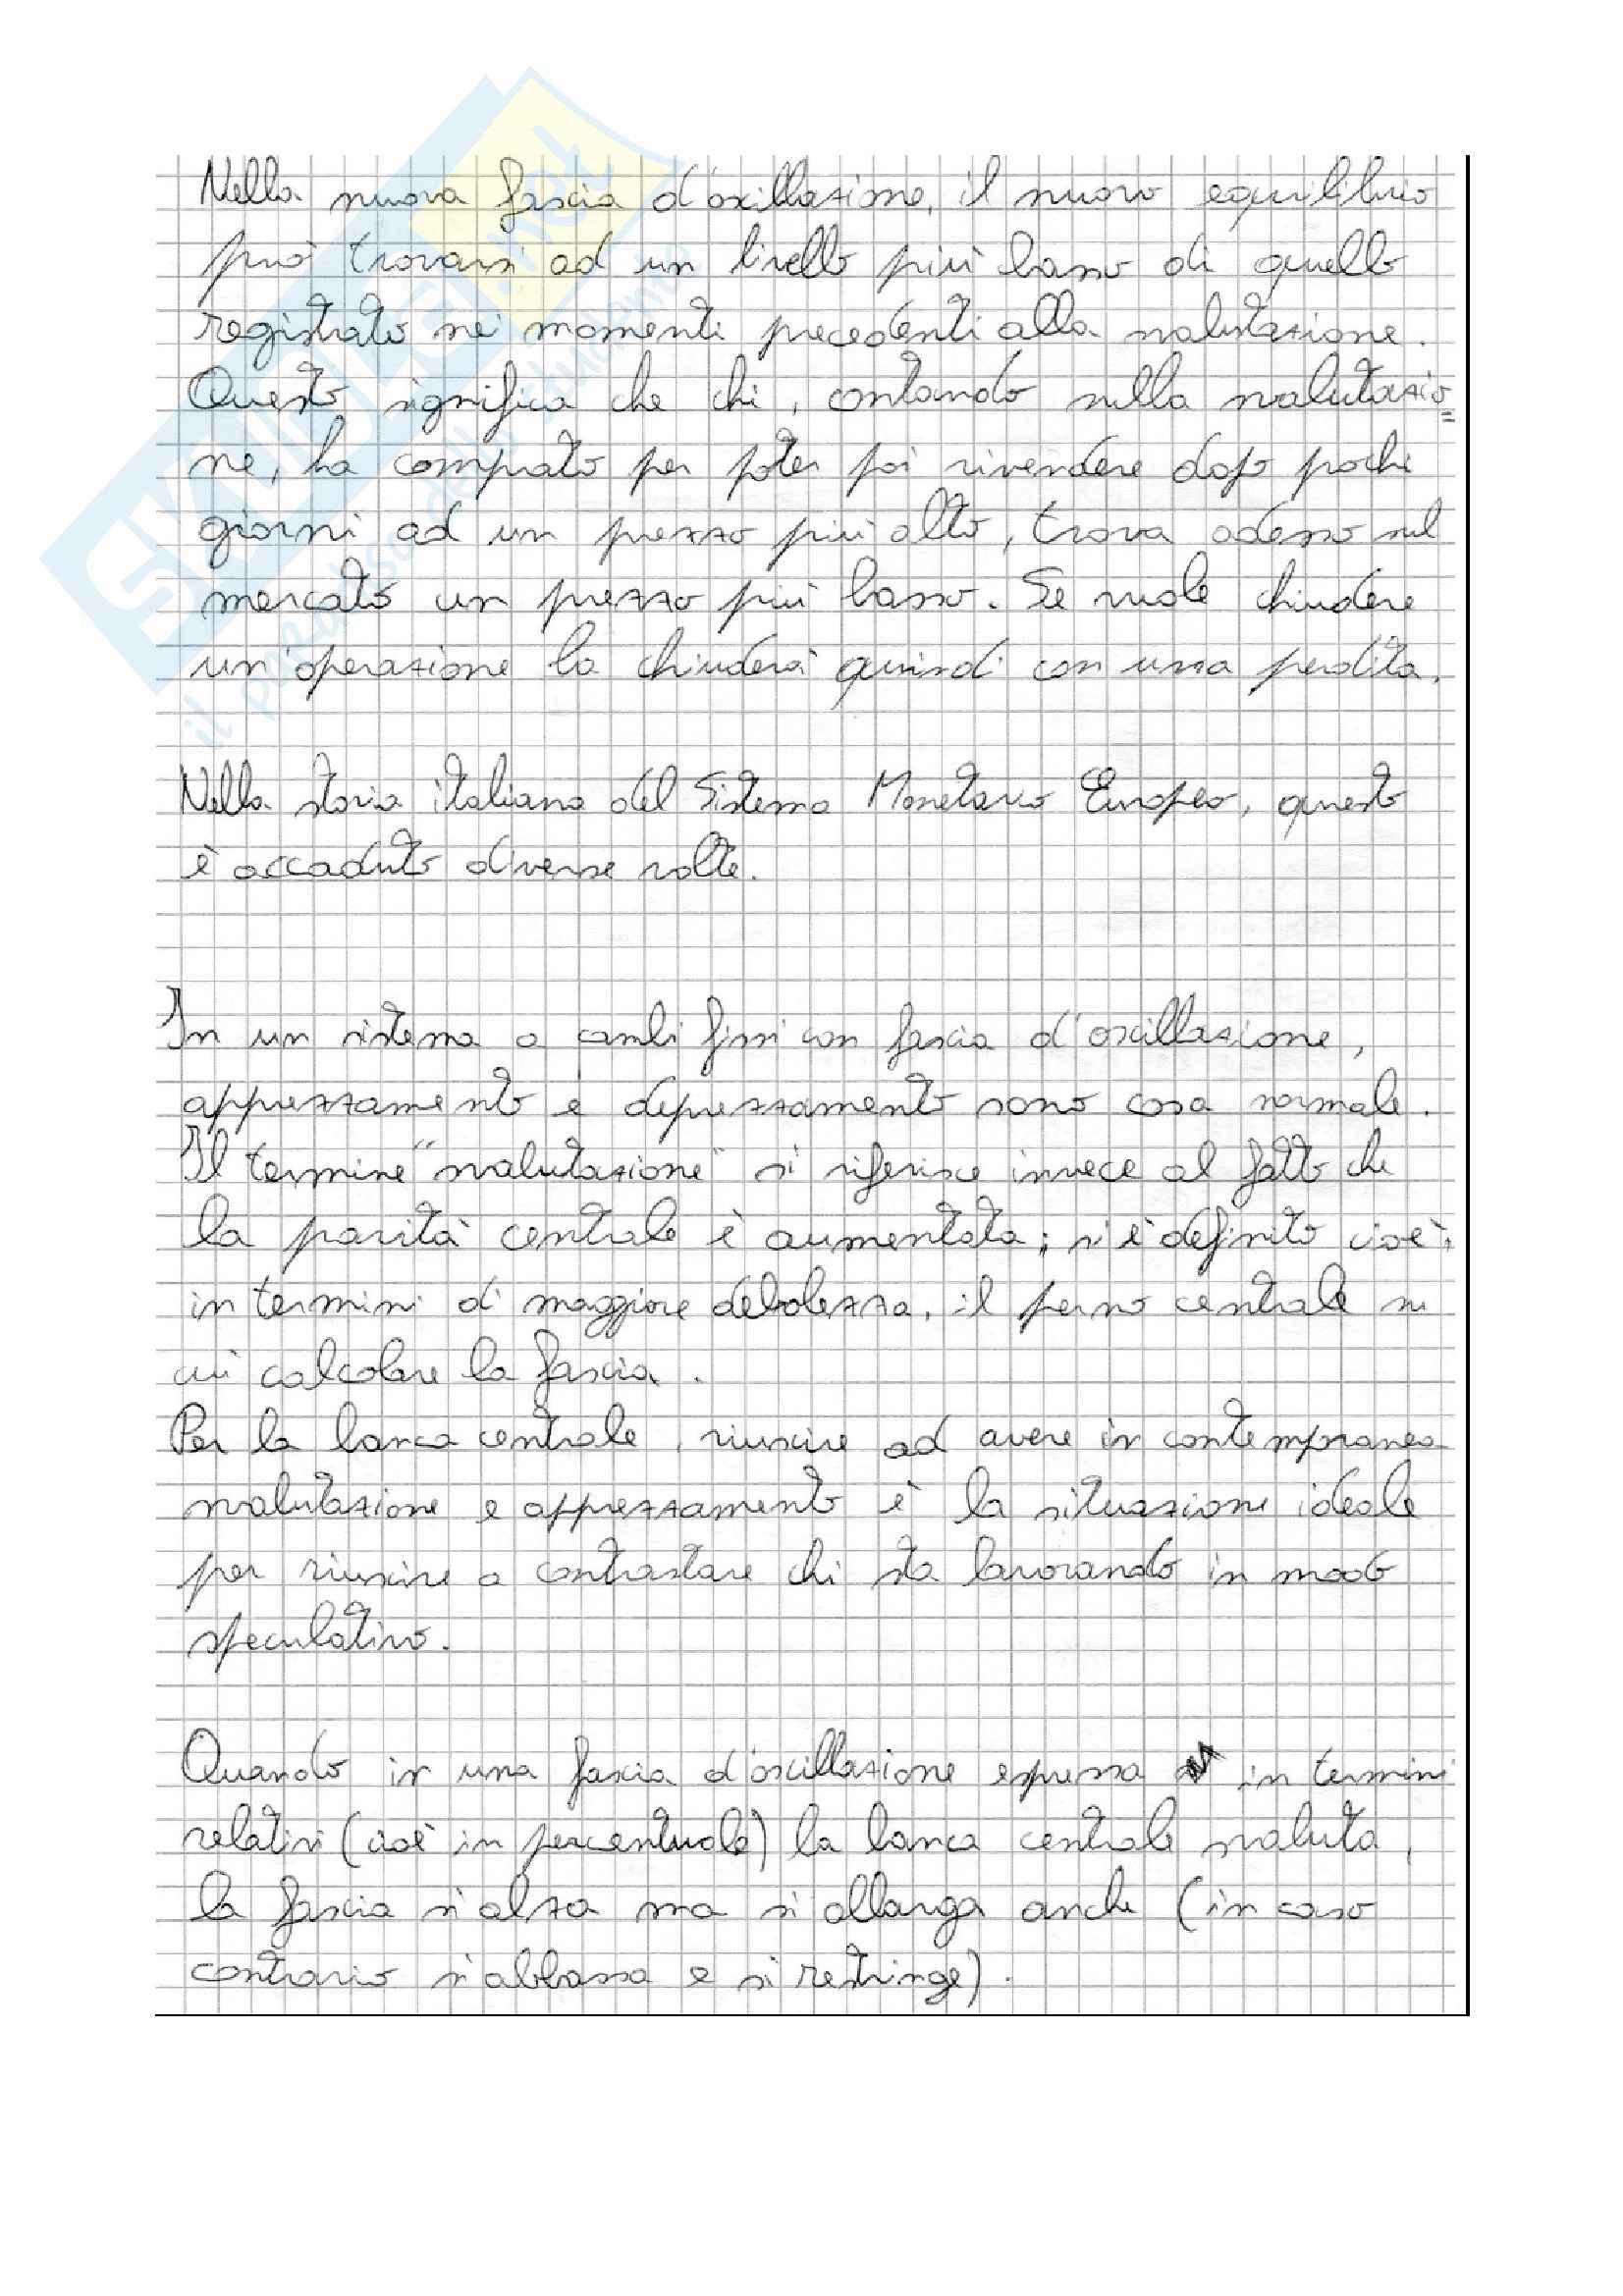 Nella nuova fascia d'oscillazione, il nuovo equilibrio
può trovarsi ad un livello più basso di quello
registrato nei momenti precedenti alla svalutazione.
Questo significa che chi, contando sulla svalutazio=
ne, ha comprato per poter poi rivendere dopo pochi
giorni ad un prezzo più alto, trova adesso sul
mercato un prezzo più basso. Se vuole chiudere
un'operazione la chiuderà quindi con una perdita.
Nella storia italiana del Sistema Monetario Europeo, questo
è accaduto diverse volte.
In un sistema a cambi fissi con fascia d'oscillazione,
apprezzamento e deprezzamento sono cosa normale.
Il termine "svalutazione" si riferisce invece al fatto che
la parità centrale è aumentata; si è definito cioè,
in termini di maggiore debolezza, il perno centrale su
cui calcolare la fascia.
Per la banca centrale, riuscire ad avere in contemporanea
svalutazione e apprezzamento è la situazione ideale
per riuscire a contrastare chi sta lavorando in modo
speculativo.
Quando in una fascia d'oscillazione espressa in termini
relativi (cioè in percentuale) la banca centrale svaluta,
la fascia si alza ma si allarga anche (in caso
contrario si abbassa e si restringe).
SKUOLA.net
il paradiso dello studente